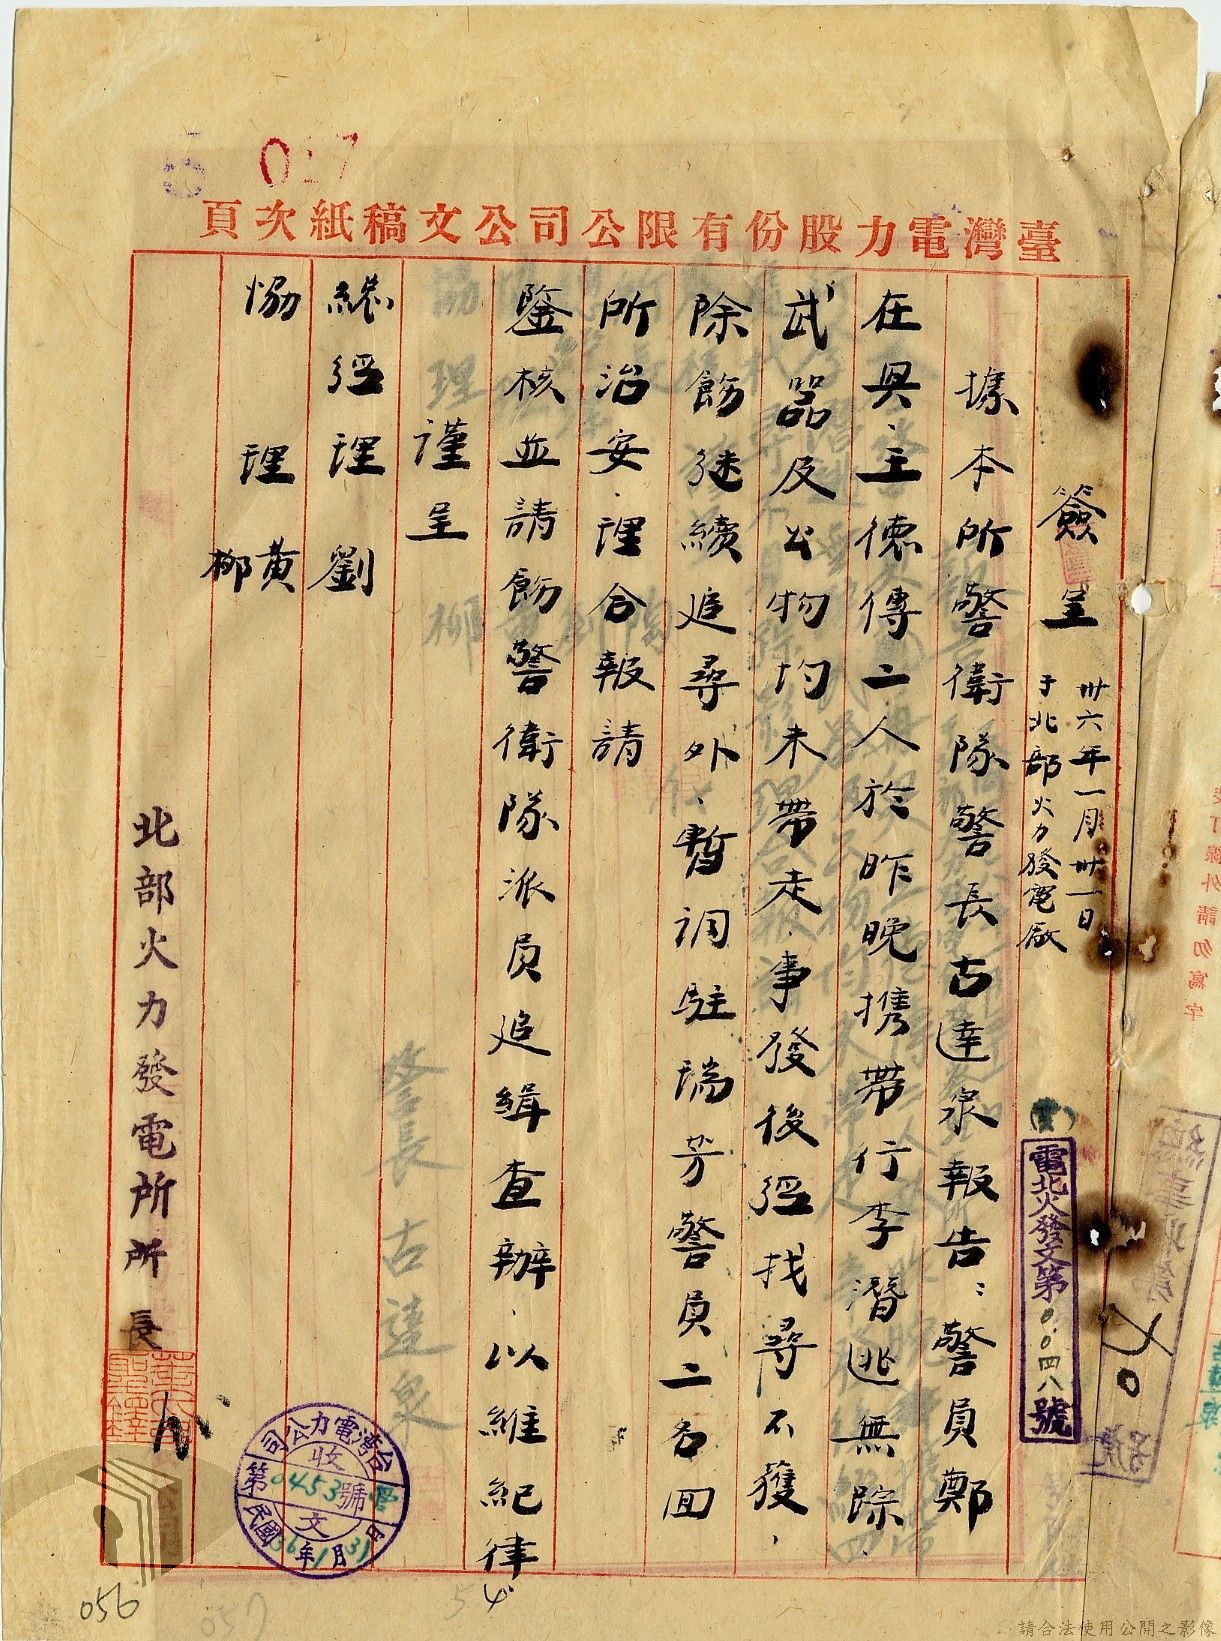 017
臺灣電力股份有限公司公文稿紙次頁
簽呈
卅六年一月卅一日
于北部火力發電廠
電北火發文第0.0四八號
據本所警衛隊警長古達泉報告：警員鄭
在興、王德傳二人於昨晚携帶行李潛逃無踪.
武器及公物均未帶走、事發後經找尋不獲，
除飭継續追尋外、暫調駐瑞芳警員二名回
所治安.理合報請
鑒核並請飭警衛隊派員追緝查辦.以維紀律
謹呈
總經理劉
協理黃
柳
北部火力發電所所長
台灣電力公司
收
第0453號
文
民國36年1月31日
警長古達泉
056
057
裝訂線外請勿寫字
請合法使用公開之影像